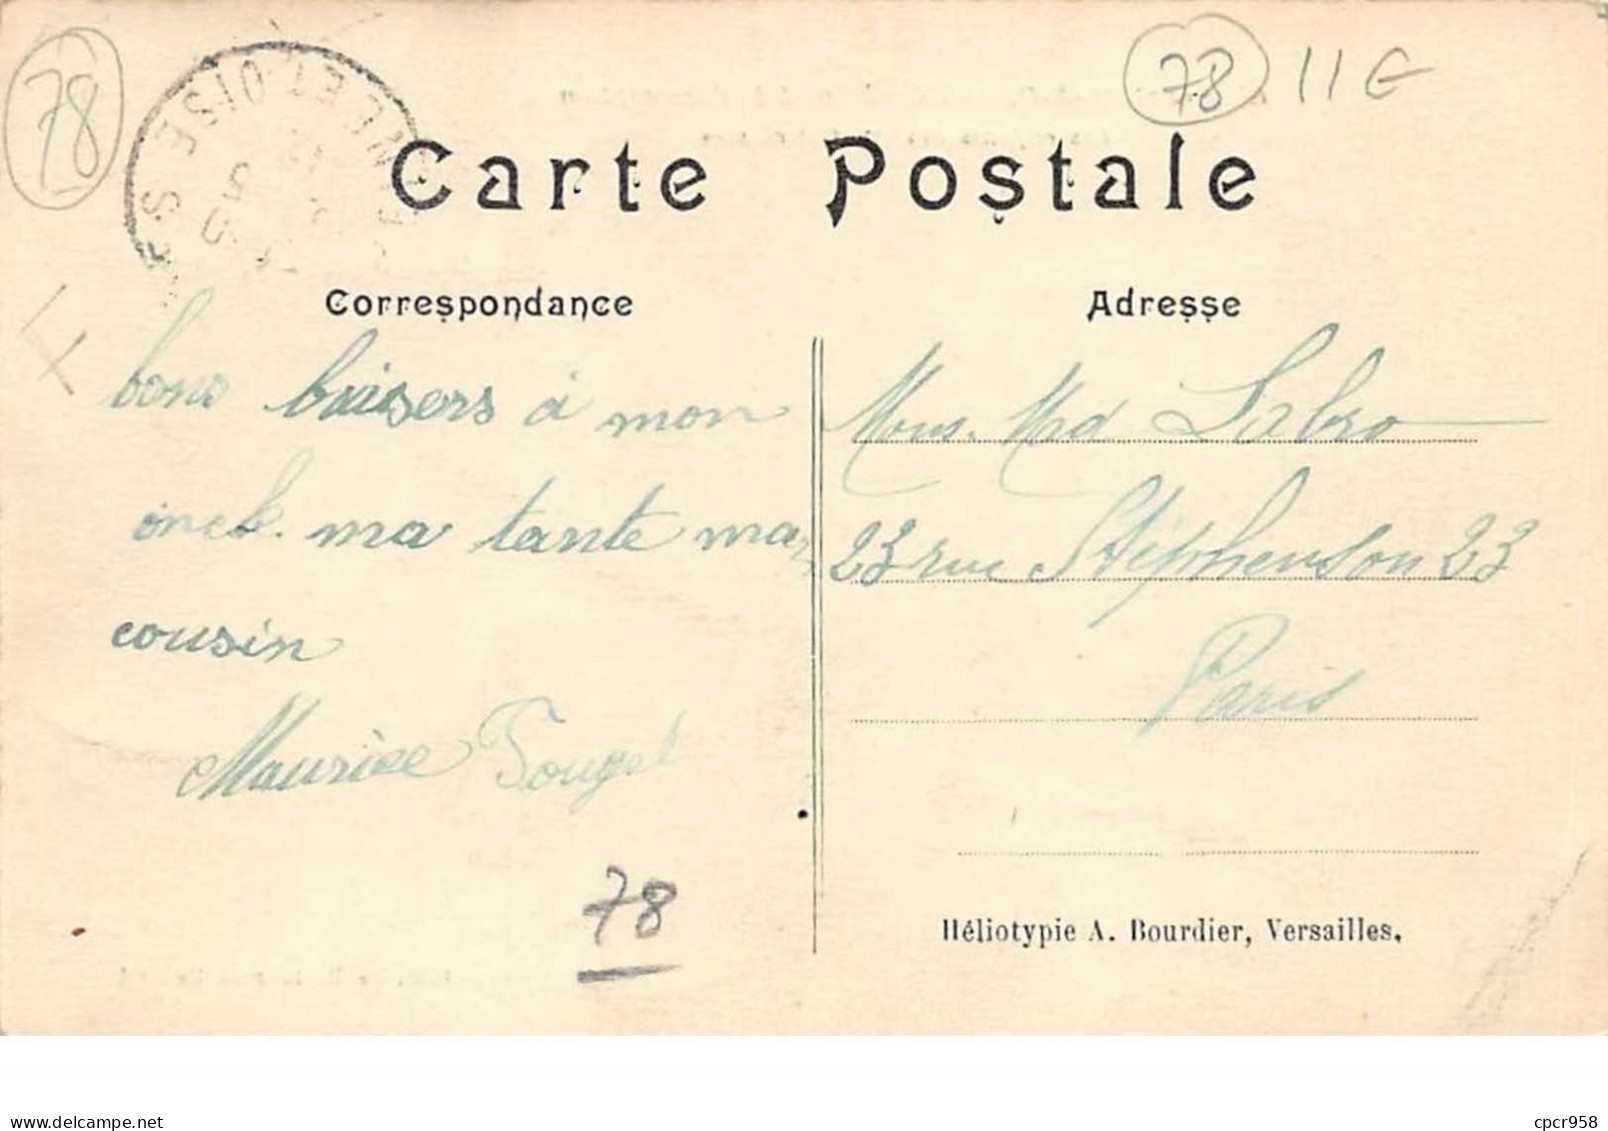 78
78 11 €
NE ET OISE
Carte Postale
Correspondance
Adresse
bons baisers à mon
oncle. ma tante mon
cousin
Maurice
Mons. Mad Labro
23 rue Stéphenson 23
Paris
78
Héliotypie A. Bourdier, Versailles.
delcampe.net
cpcr958